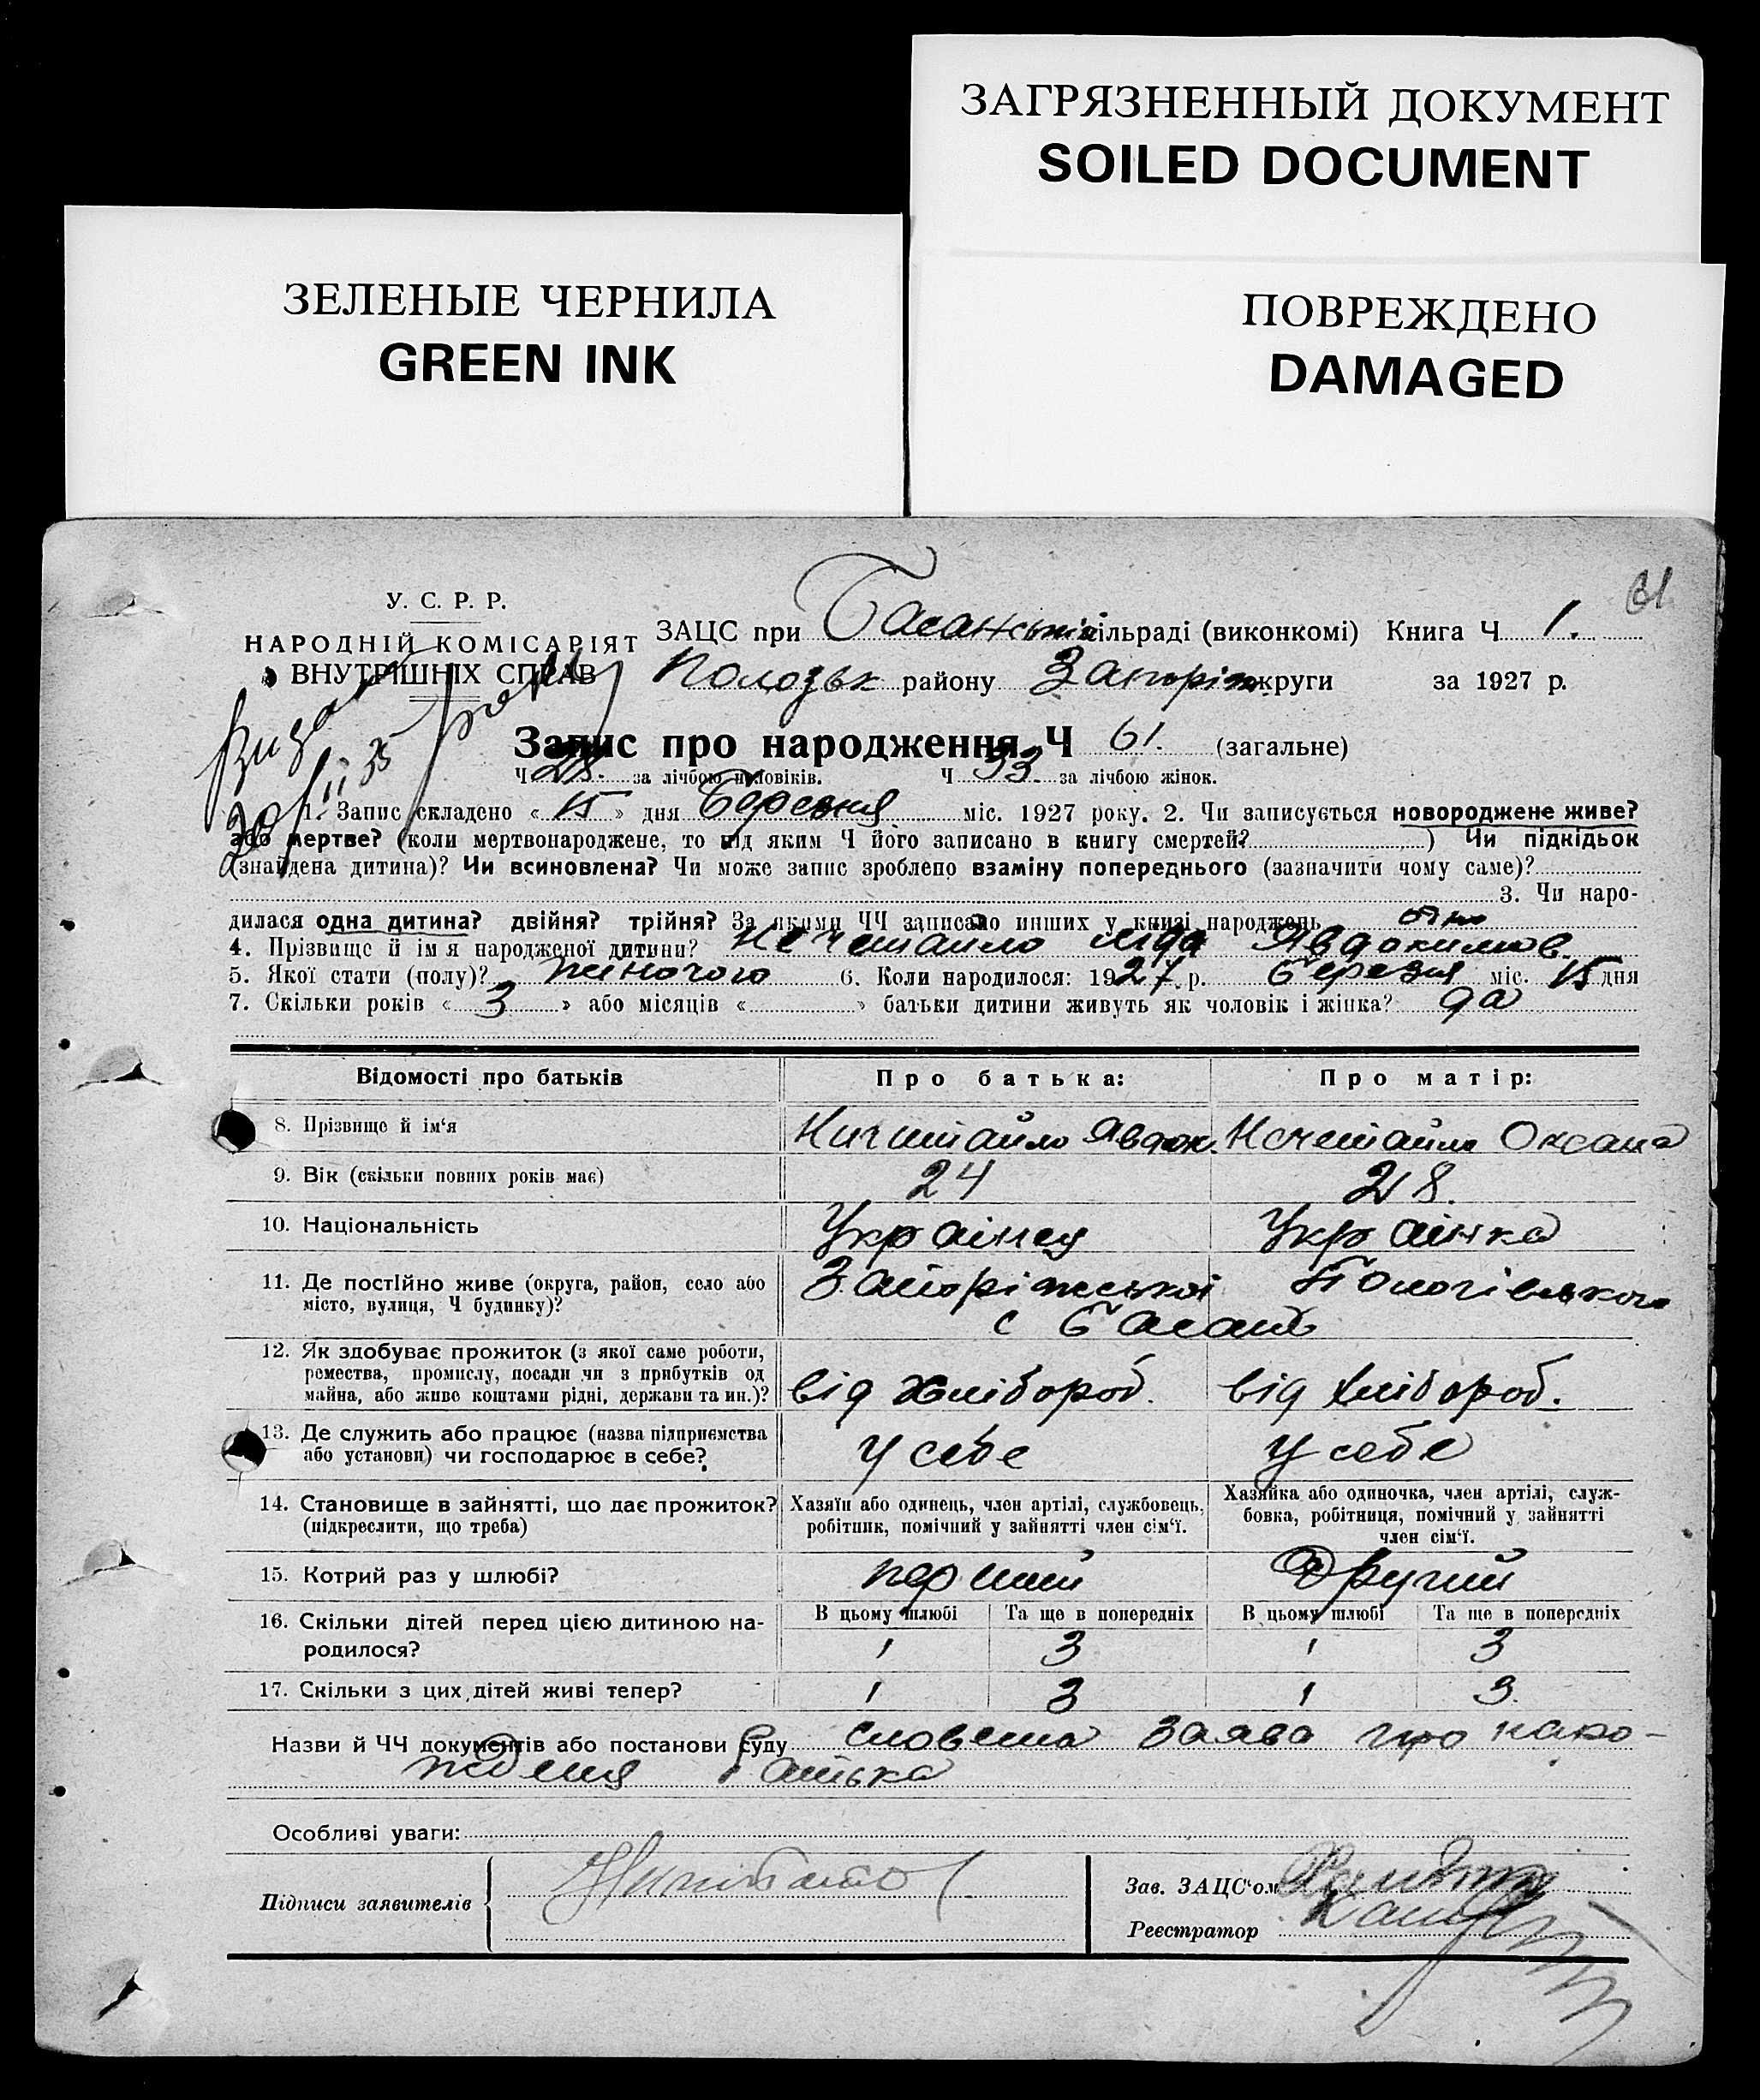 ЗАГРЯЗНЕННЫЙ ДОКУМЕНТ
SOILED DOCUMENT
ЗЕЛЕНЫЕ ЧЕРНИЛА
GREEN INK
ПОВРЕЖДЕНО
DAMAGED
61
У. С. Р. Р.
НАРОДНІЙ КОМІСАРІЯТ
ВНУТРІШНІХ СПРАВ
ЗАЦС при Басанській сільраді (виконкомі) Книга Ч 1.
Полозьк району Запоріж округи за 1927 р.
Запис про народження Ч 61. (загальне)
Ч 28. за лічбою чоловіків. Ч 33. за лічбою жінок.
1. Запис складено « 15 » дня Березня міс. 1927 року. 2. Чи записується новороджене живе?
або мертве? (коли мертвонароджене, то під яким Ч його записано в книгу смертей? ) Чи підкідьок
(знайдена дитина)? Чи всиновлена? Чи може запис зроблено взаміну попереднього (зазначити чому саме)?
3. Чи наро-
дилася одна дитина? двійня? трійня? За якими ЧЧ записано инших у книзі народжень
4. Прізвище й ім я народженої дитини? Нечетайло Ліда Явдокимов.
5. Якої стати (полу)? жиночого 6. Коли народилося: 1927 р. березня міс. 15 дня
7. Скільки років « 3 » або місяців « » батьки дитини живуть як чоловік і жінка? да
Відомості про батьків Про батька: Про матір:
8. Прізвище й ім'я Ничитайло Явдок. Нечетайло Оксана
9. Вік (скільки повних років має) 24 28.
10. Національність Українец Українка
11. Де постійно живе (округа, район, село або
місто, вулиця, Ч будинку)? Запоріжської Пологівського
с Басань
12. Як здобуває прожиток (з якої саме роботи,
ремества, промислу, посади чи з прибутків од
майна, або живе коштами рідні, держави та ин.)? від хлібороб. від хлібороб.
13. Де служить або працює (назва підприємства
або установи) чи господарює в себе? у себе у себе
14. Становище в зайнятті, що дає прожиток?
(підкреслити, що треба)
Хазяїн або одинець, член артілі, службовець,
робітник, помічний у зайнятті член сім'ї.
Хазяйка або одиночка, член артілі, служ-
бовка, робітниця, помічний у зайнятті
член сім'ї.
15. Котрий раз у шлюбі? перший другий
16. Скільки дітей перед цією дитиною на-
родилося?
В цьому шлюбі Та ще в попередніх В цьому шлюбі Та ще в попередніх
1 3 1 3
17. Скільки з цих дітей живі тепер? 1 3 1 3.
Назви й ЧЧ документів або постанови суду словесна заява про наро-
ждения батька
Особливі уваги:
Підписи заявителів
Зав. ЗАЦС'ом
Реєстратор